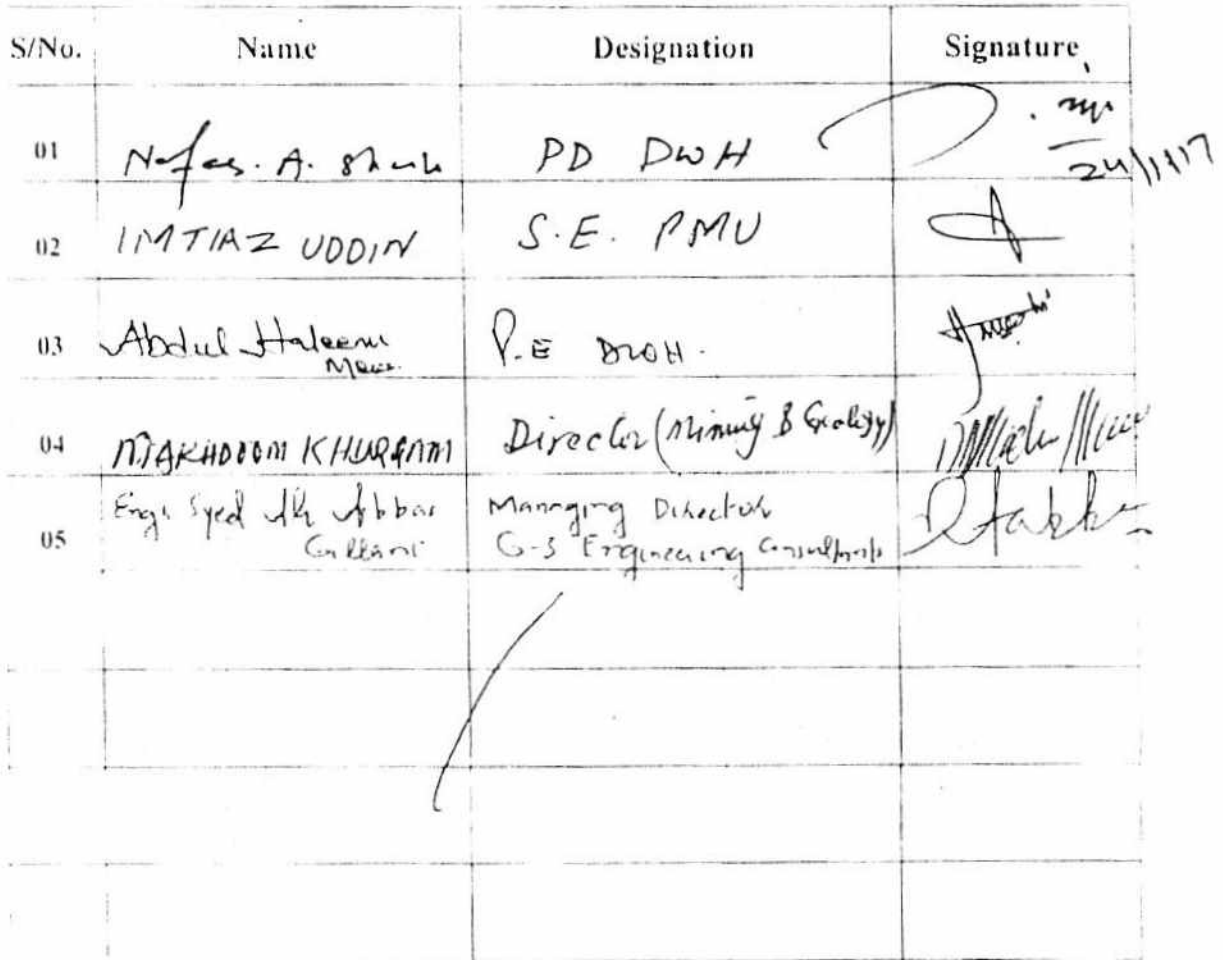 S/No. Name Designation Signature
01 Nafees. A. Shaik PD DWH
24/11/17
02 IMTIAZ UDDIN S.E. PMU
03 Abdul Haleem P.E DWH.
04 MAKHDOOM KHURRAM Director (Mining & Geology)
05 Engr Syed Ali Abbas Managing Director
Gillani G-3 Engineering Consultants